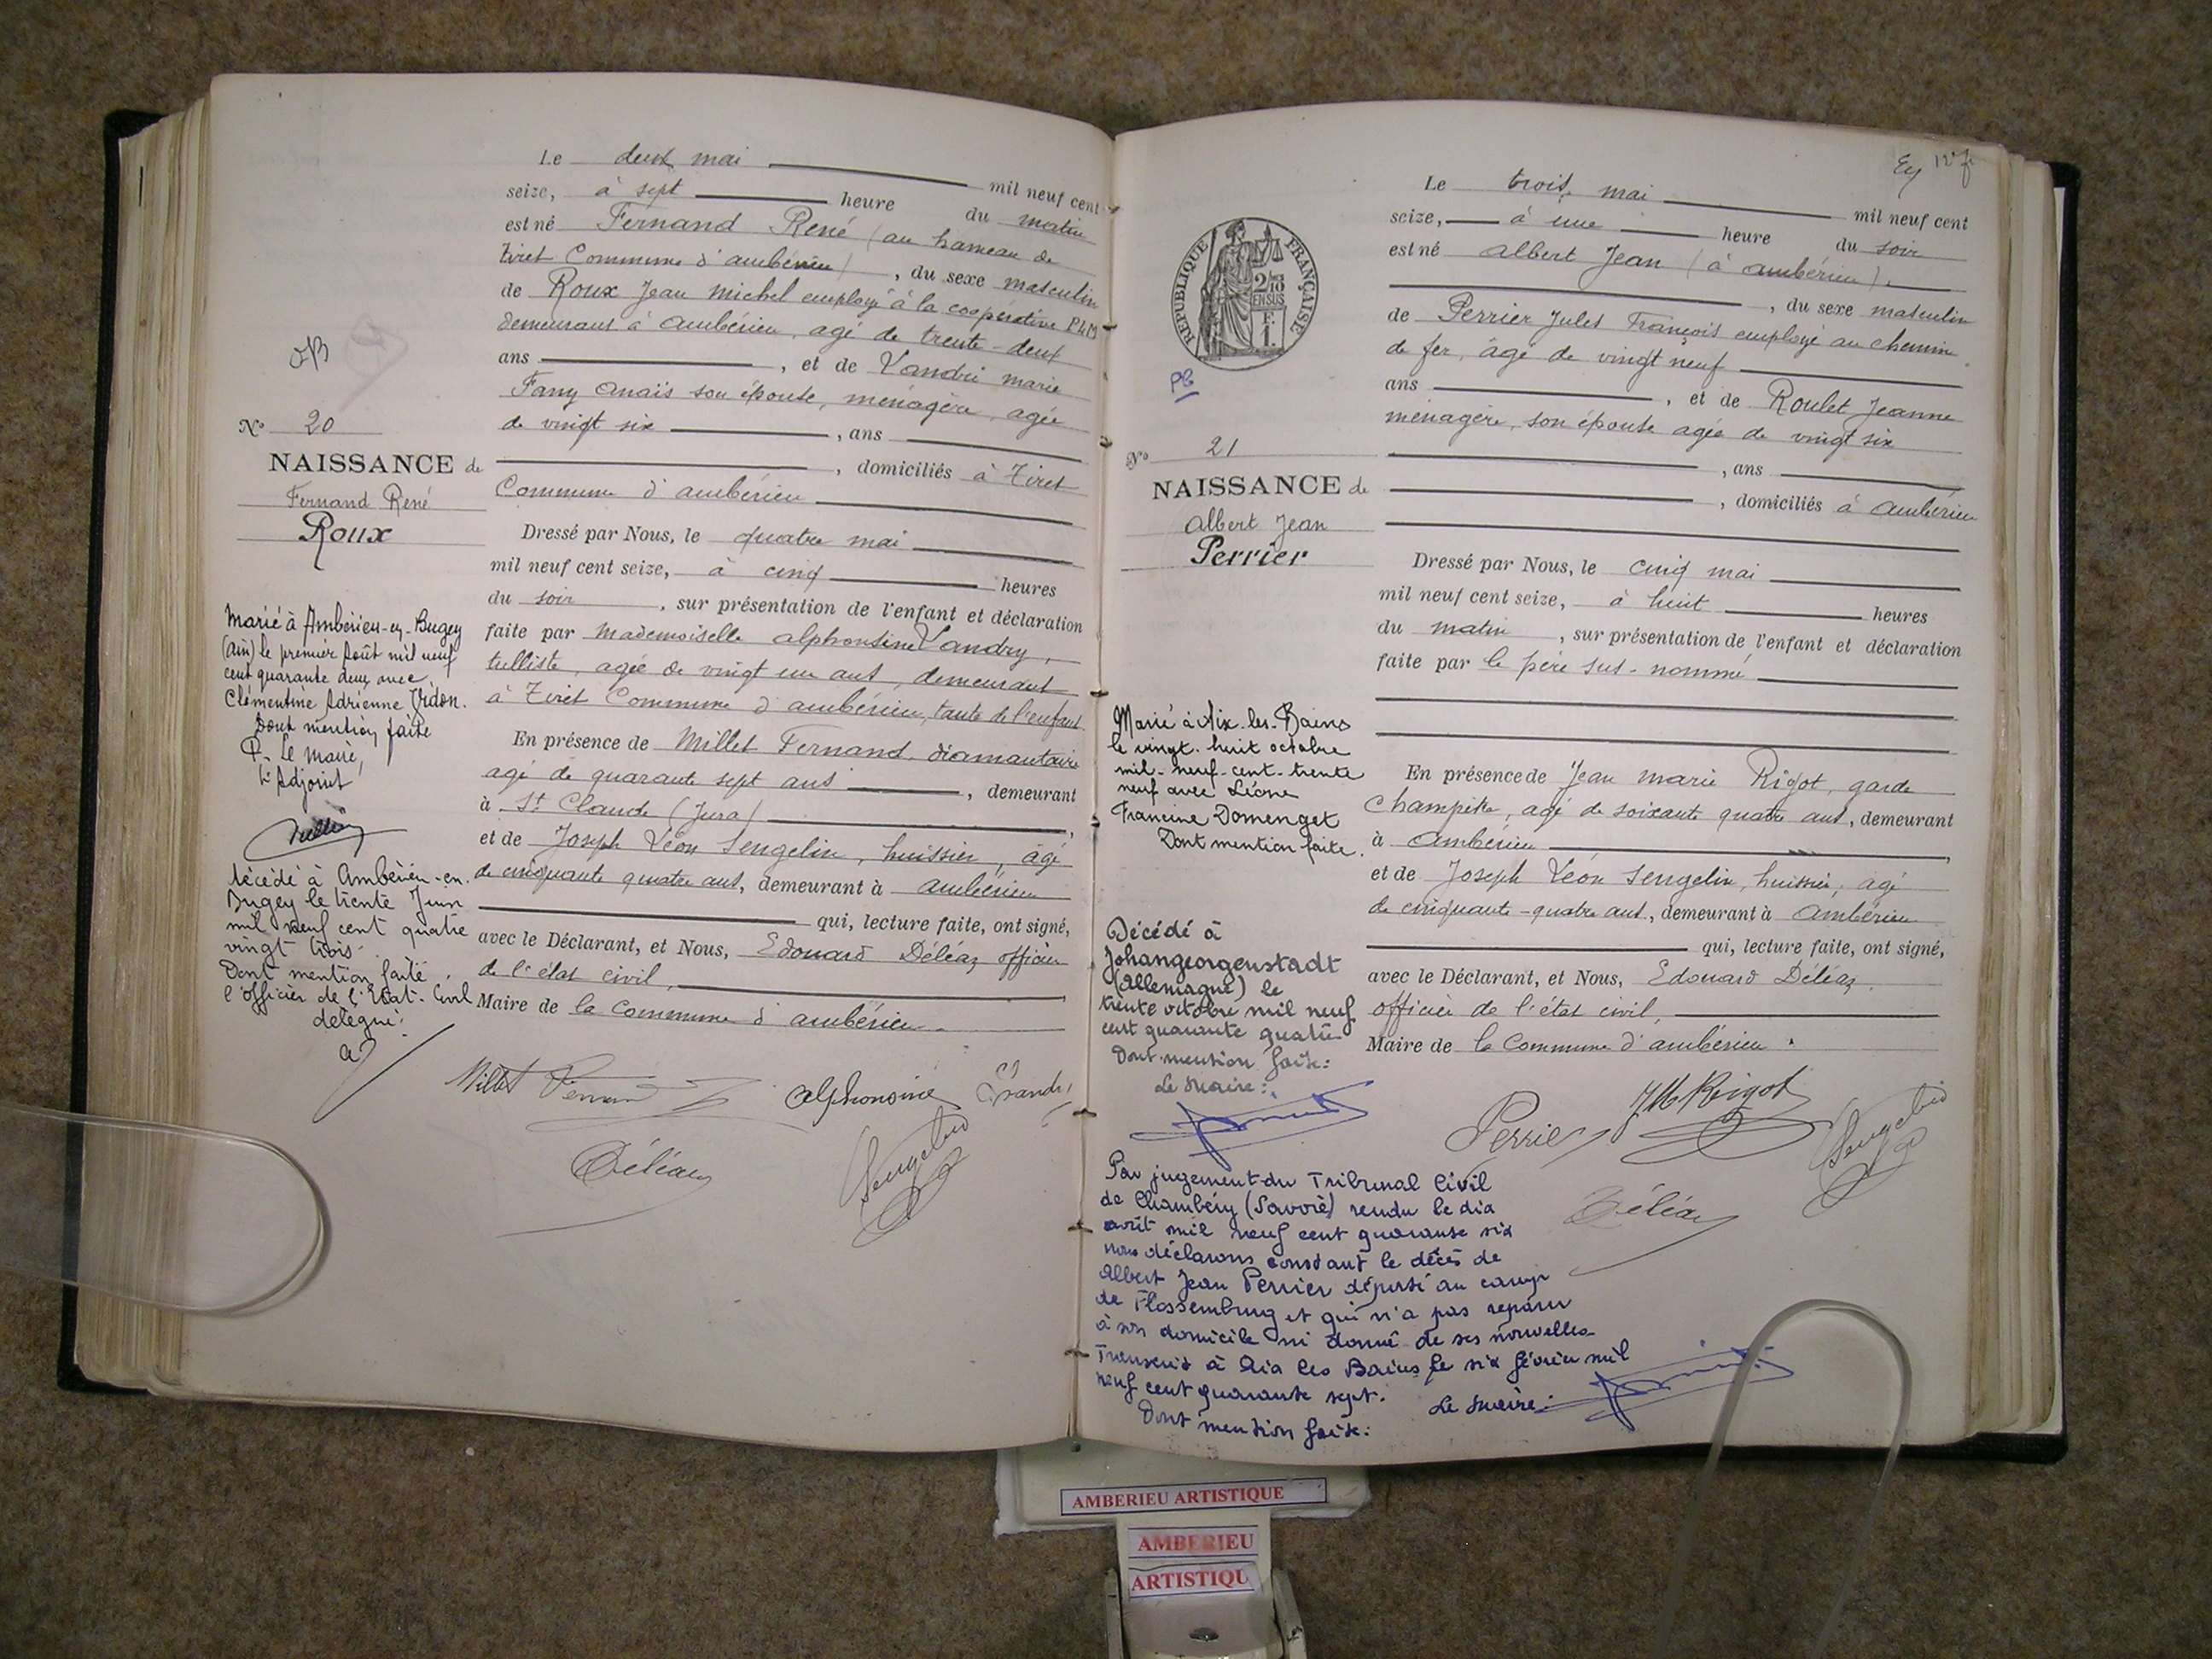 Le deux mai mil neuf cent
seize, à sept heure du matin
est né Fernand René (au hameau de
Tiret Commune d'ambérieu), du sexe masculin
de Roux Jean Michel employé à la coopérative PLM
demeurant à Ambérieu, agé de trente-deux
ans, et de Vandri marie
Fany Anaïs son épouse, ménagère, agée
de vingt six, ans
, domiciliés à Tiret
Commune d'ambérieu
Dressé par Nous, le quatre mai
mil neuf cent seize, à cinq heures
du soir, sur présentation de l'enfant et déclaration
faite par Mademoiselle alphonsine Vandry,
tulliste, agée de vingt un ans, demeurant
à Tiret Commune d'ambérieu, tante de l'enfant
En présence de Millet Fernand, diamantaire
agé de quarante sept ans, demeurant
à St Claude (Jura),
et de Joseph Léon Sengelin, huissier, âgé
de cinquante quatre ans, demeurant à ambérieu
qui, lecture faite, ont signé,
avec le Déclarant, et Nous, Edouard Déléaz officier
de l'état civil,
Maire de la Commune d'ambérieu
Millet Fernand
alphonsine Vandri
Déléaz
Sengelin
OB
No 20
NAISSANCE de
Fernand René
Roux
Marié à Ambérieu-en-Bugey
(Ain) le premier Août mil neuf
cent quarante deux avec
Clémentine Adrienne Vidon.
Dont mention faite
P. Le Maire,
L'Adjoint
Décédé à Ambérieu-en-
Bugey le trente Juin
mil neuf cent quatre
vingt trois.
Dont mention faite.
l'officier de l'Etat-Civil
délégué:
12 f
Le trois mai mil neuf cent
seize, à une heure du soir
est né Albert Jean (à ambérieu).
, du sexe masculin
de Perrier Jules François employé au chemin
de fer, âgé de vingt neuf
ans, et de Roulet Jeanne
ménagère, son épouse agée de vingt six
, ans
, domiciliés à Ambérieu
Dressé par Nous, le cinq mai
mil neuf cent seize, à huit heures
du matin, sur présentation de l'enfant et déclaration
faite par le père sus-nommé
En présence de Jean marie Rigot, garde
Champêtre, agé de soixante quatre ans, demeurant
à Ambérieu,
et de Joseph Léon Sengelin, huissier, agé
de cinquante-quatre ans, demeurant à Ambérieu
qui, lecture faite, ont signé,
avec le Déclarant, et Nous, Edouard Déléaz
officier de l'état civil,
Maire de la Commune d'ambérieu.
Perrier
J M Rigot
Sengelin
Déléaz
RÉPUBLIQUE FRANÇAISE
2/10
EN SUS
F.
1.
No 21
NAISSANCE de
Albert Jean
Perrier
Marié à Aix-les-Bains
le vingt-huit octobre
mil-neuf-cent-trente
neuf avec Léone
Francine Domenget
Dont mention faite.
Décédé à
Johangeorgenstadt
(Allemagne) le
trente octobre mil neuf
cent quarante quatre
Dont mention faite:
Le Maire:
Par jugement du Tribunal Civil
de Chambéry (Savoie) rendu le dix
août mil neuf cent quarante six
nous déclarons constant le décès de
Albert Jean Perrier déporté au camp
de Flossemburg et qui n'a pas reparu
à son domicile ni donné de ses nouvelles
Transcrit à Aix les Bains le six février mil
neuf cent quarante sept. Le Maire:
Dont mention faite:
AMBERIEU ARTISTIQUE
AMBERIEU
ARTISTIQU